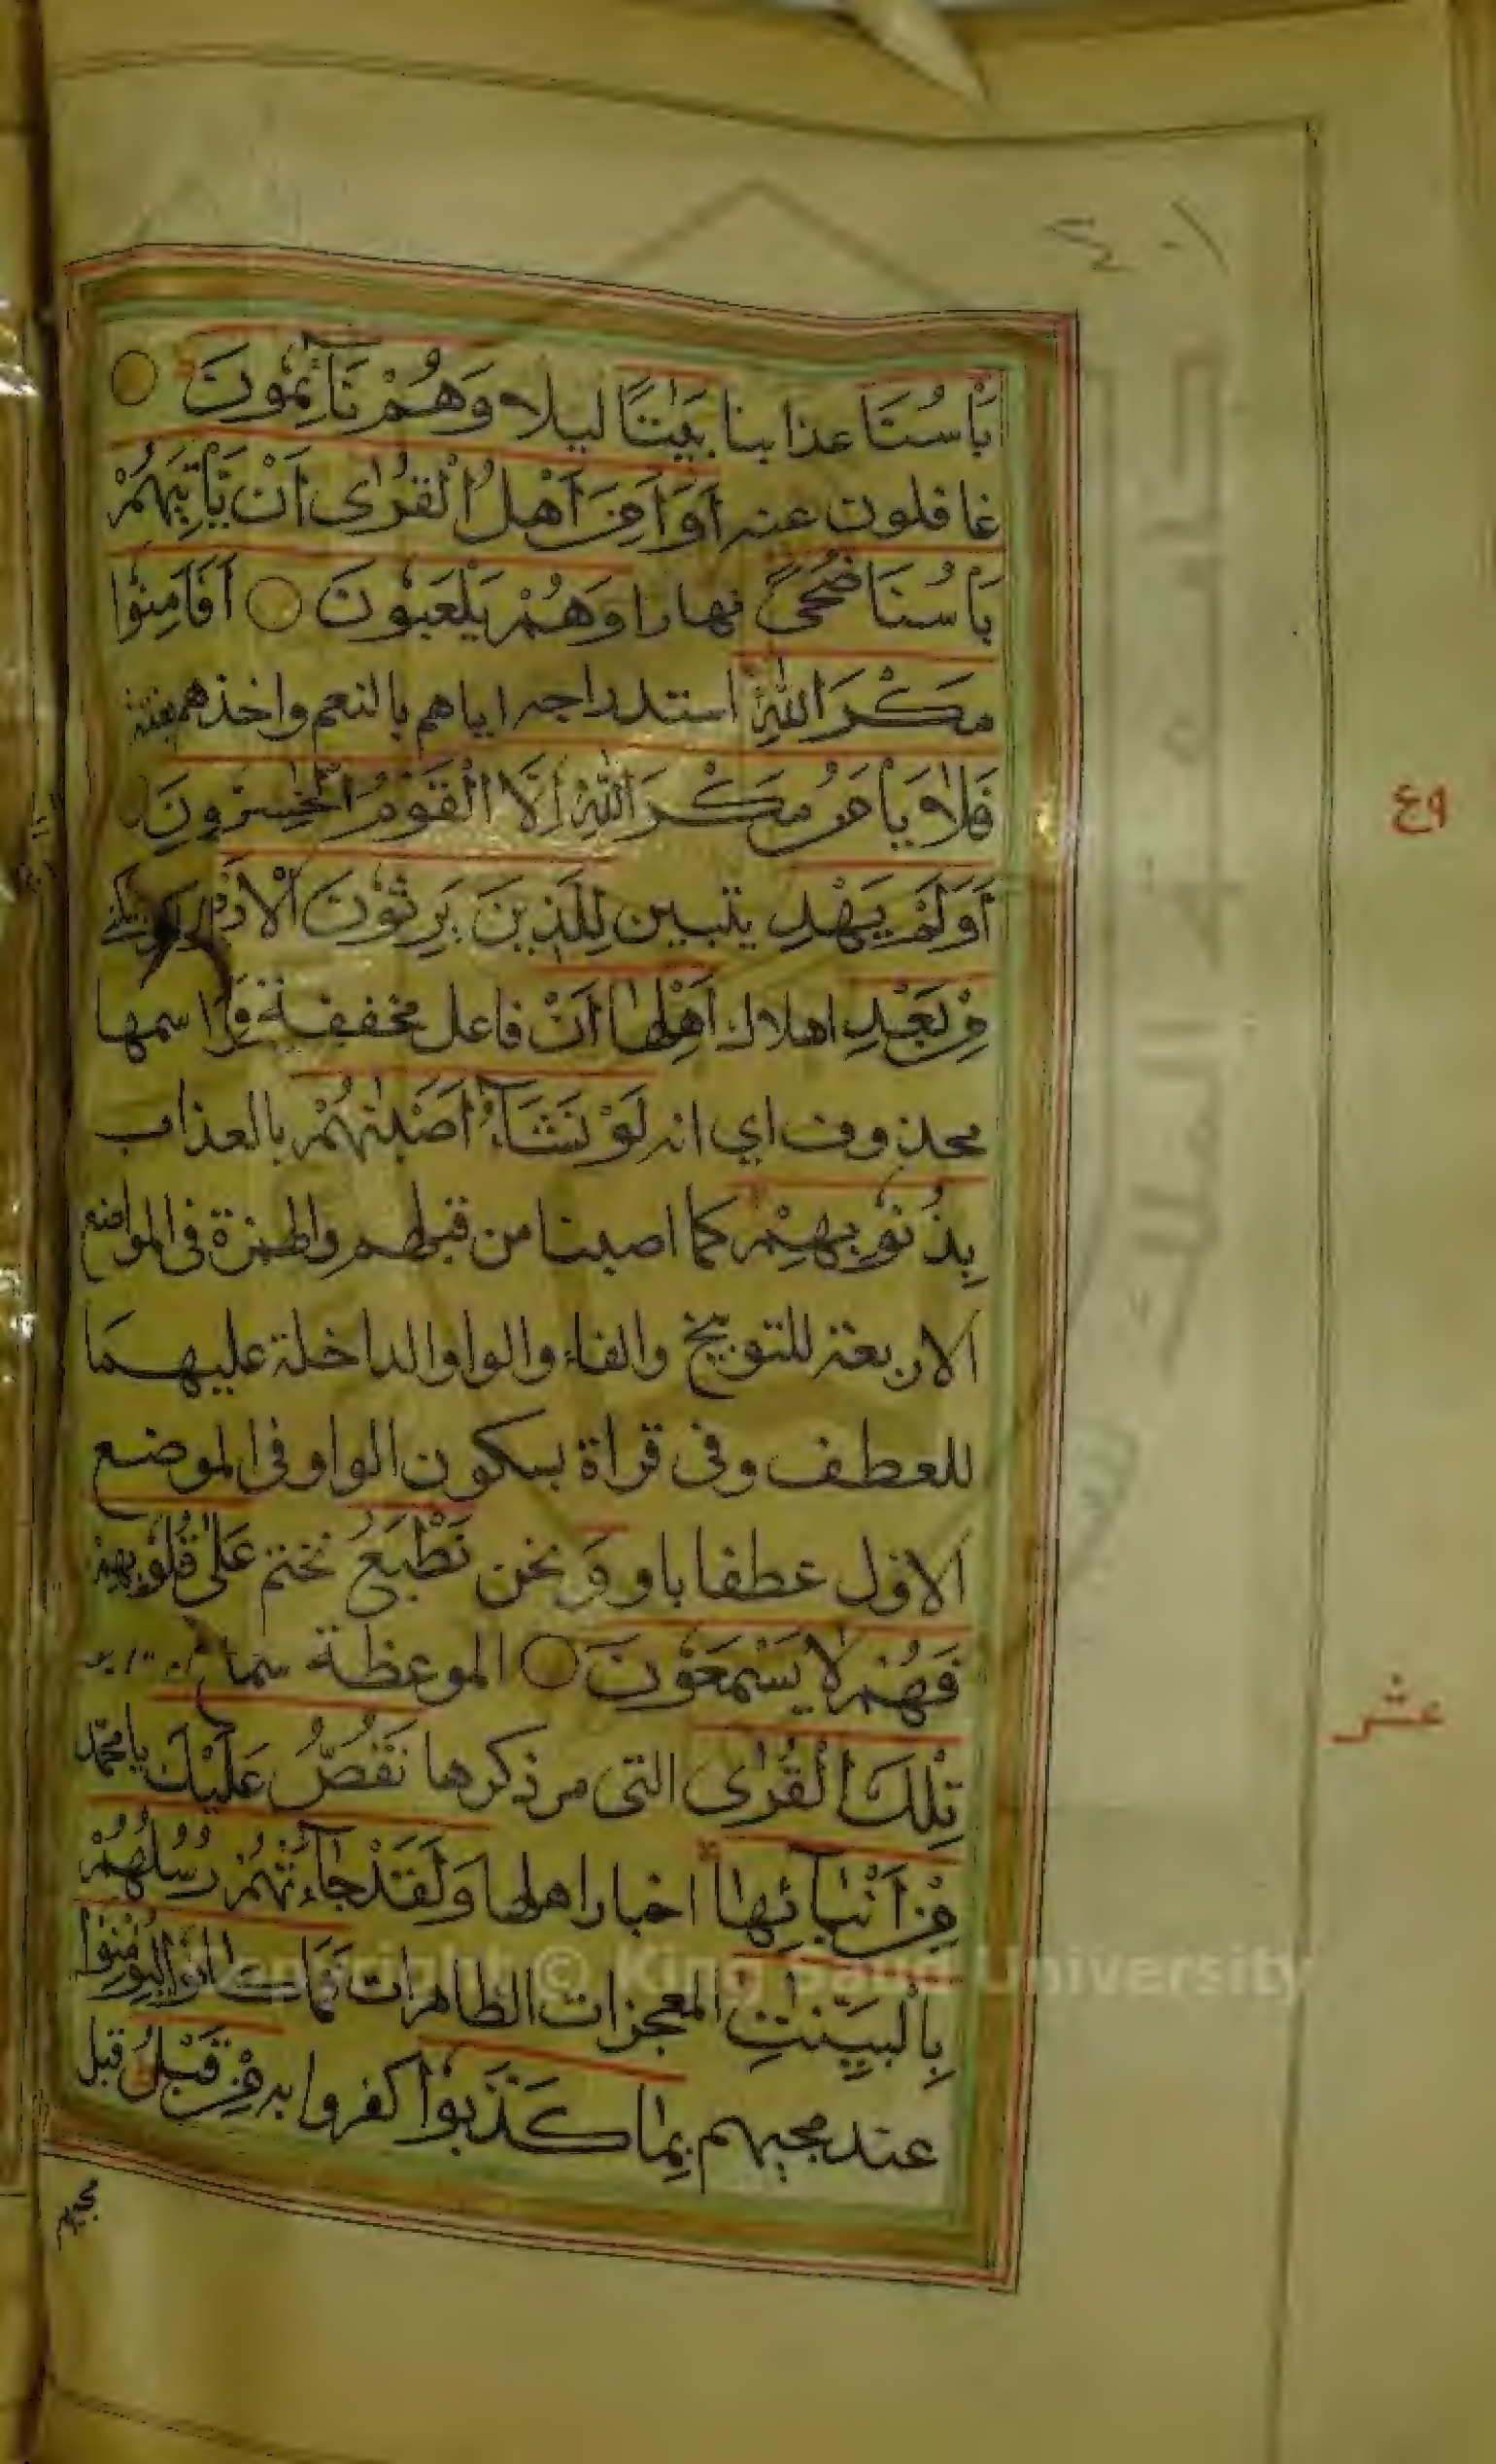 بَأْسُنَا عذابنا بَيَاتًا ليلا وَهُمْ نَائِمُونَ
غافلون عنه أَوَأَمِنَ أَهْلُ الْقُرٰى أَنْ يَأْتِيَهُمْ
بَأْسُنَا ضُحًى نهارا وَهُمْ يَلْعَبُونَ أَفَأَمِنُوا
مَكْرَ اللّٰهِ استدراجه اياهم بالنعم واخذهم بغتة
فَلَا يَأْمَنُ مَكْرَ اللّٰهِ إِلَّا الْقَوْمُ الْخٰسِرُونَ
أَوَلَمْ يَهْدِ يتبين لِلَّذِينَ يَرِثُونَ الْأَرْضَ
مِنْ بَعْدِ اهلاك أَهْلِهَا أَنْ فاعل مخففة اسمها
محذوف اي انه لَوْ نَشَاءُ أَصَبْنٰهُمْ بالعذاب
بِذُنُوبِهِمْ كما اصبنا من قبلهم والهمزة فى المواضع
الاربعة للتوبيخ والفاء والواو الداخلة عليهما
للعطف وفى قراة بسكون الواو فى الموضع
الاول عطفا باو وَ نحن نَطْبَعُ نختم عَلٰى قُلُوبِهِمْ
فَهُمْ لَا يَسْمَعُونَ الموعظة سماع
تِلْكَ الْقُرٰى التى مر ذكرها نَقُصُّ عَلَيْكَ يا محمد
مِنْ أَنْبَائِهَا اخبار اهلها وَلَقَدْ جَاءَتْهُمْ رُسُلُهُمْ
بِالْبَيِّنٰتِ المعجزات الظاهرات فَمَا كَانُوا لِيُؤْمِنُوا
عند مجيهم بِمَا كَذَّبُوا كفروا به مِنْ قَبْلُ قبل
مجيهم
عشر
Copyright © King Saud University